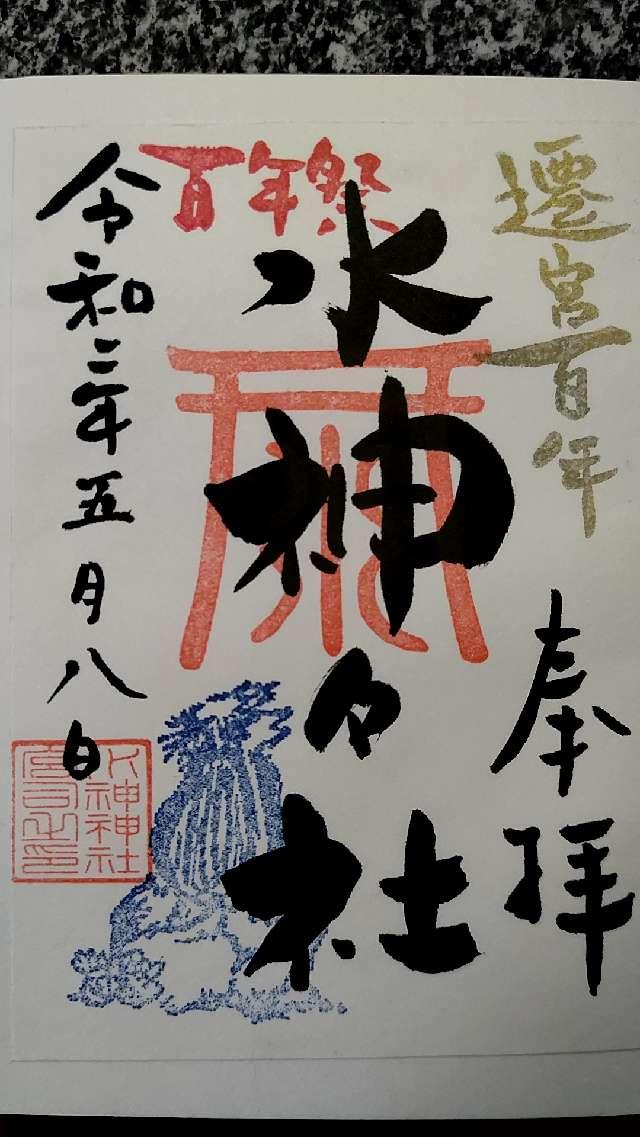 遷宮百年
奉拝
百年祭
水神々社
令和三年五月八日
水神神社
宮司之印